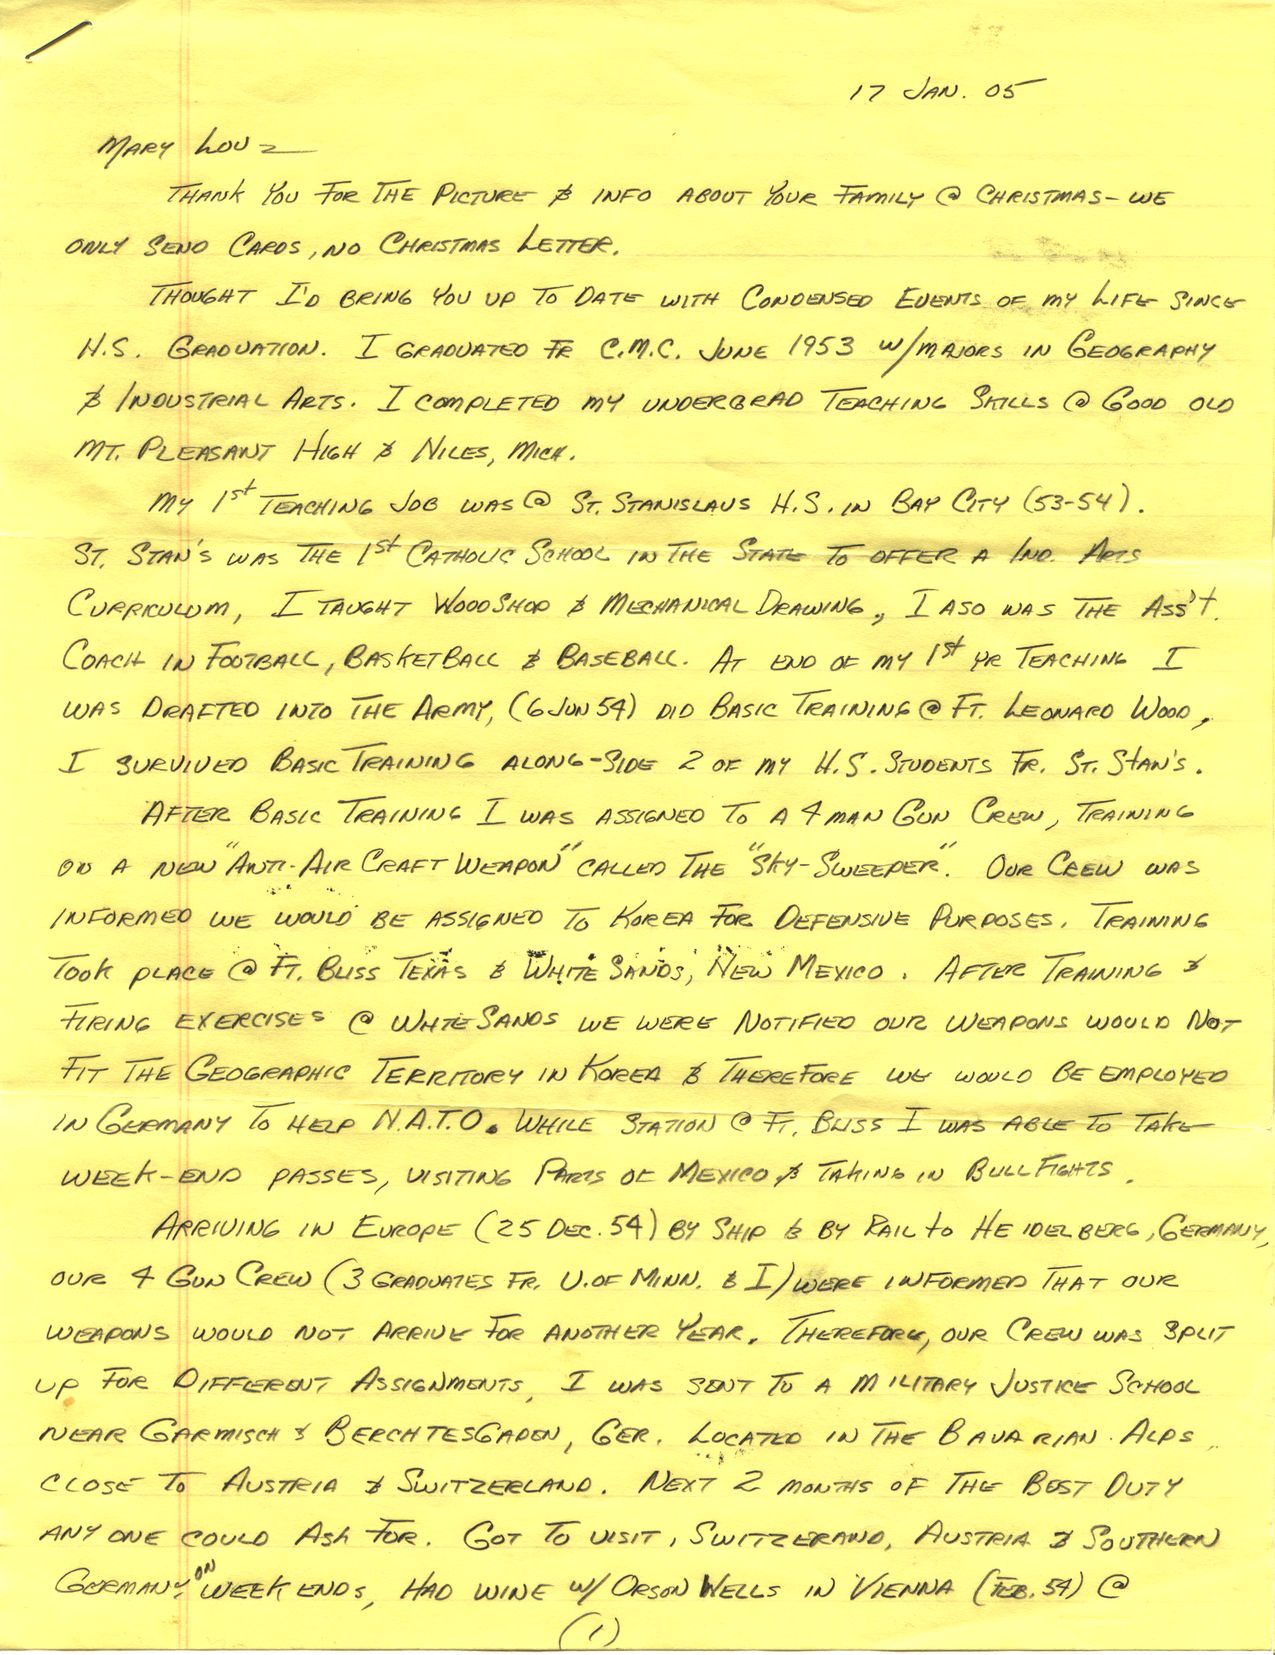 17 JAN. 05
MARY LOU -
THANK YOU FOR THE PICTURE & INFO ABOUT YOUR FAMILY @ CHRISTMAS - WE
ONLY SEND CARDS, NO CHRISTMAS LETTER.
THOUGHT I'D BRING YOU UP TO DATE WITH CONDENSED EVENTS OF MY LIFE SINCE
H.S. GRADUATION. I GRADUATED FR C.M.C. JUNE 1953 W/MAJORS IN GEOGRAPHY
& INDUSTRIAL ARTS. I COMPLETED MY UNDERGRAD TEACHING SKILLS @ GOOD OLD
MT. PLEASANT HIGH & NILES, MICH.
MY 1st TEACHING JOB WAS @ ST. STANISLAUS H.S. IN BAY CITY (53-54).
ST. STAN'S WAS THE 1st CATHOLIC SCHOOL IN THE STATE TO OFFER A IND. ARTS
CURRICULUM, I TAUGHT WOODSHOP & MECHANICAL DRAWING, I ASO WAS THE ASS't.
COACH IN FOOTBALL, BASKETBALL & BASEBALL. AT END OF MY 1st YR TEACHING I
WAS DRAFTED INTO THE ARMY, (6 JUN 54) DID BASIC TRAINING @ FT. LEONARD WOOD,
I SURVIVED BASIC TRAINING ALONG-SIDE 2 OF MY H.S. STUDENTS FR. ST. STAN'S.
AFTER BASIC TRAINING I WAS ASSIGNED TO A 4 MAN GUN CREW, TRAINING
ON A NEW "ANTI-AIR CRAFT WEAPON" CALLED THE "SKY-SWEEPER". OUR CREW WAS
INFORMED WE WOULD BE ASSIGNED TO KOREA FOR DEFENSIVE PURPOSES. TRAINING
TOOK PLACE @ FT. BLISS TEXAS & WHITE SANDS, NEW MEXICO. AFTER TRAINING &
FIRING EXERCISES @ WHITE SANDS WE WERE NOTIFIED OUR WEAPONS WOULD NOT
FIT THE GEOGRAPHIC TERRITORY IN KOREA & THEREFORE WE WOULD BE EMPLOYED
IN GERMANY TO HELP N.A.T.O. WHILE STATION @ FT. BLISS I WAS ABLE TO TAKE
WEEK-END PASSES, VISITING PARTS OF MEXICO & TAKING IN BULLFIGHTS.
ARRIVING IN EUROPE (25 DEC. 54) BY SHIP & BY RAIL to HEIDELBERG, GERMANY,
OUR 4 GUN CREW (3 GRADUATES FR. U. OF MINN. & I) WERE INFORMED THAT OUR
WEAPONS WOULD NOT ARRIVE FOR ANOTHER YEAR. THEREFORE, OUR CREW WAS SPLIT
UP FOR DIFFERENT ASSIGNMENTS, I WAS SENT TO A MILITARY JUSTICE SCHOOL
NEAR GARMISCH & BERCHTESGADEN, GER. LOCATED IN THE BAVARIAN ALPS
CLOSE TO AUSTRIA & SWITZERLAND. NEXT 2 MONTHS OF THE BEST DUTY
ANY ONE COULD ASK FOR. GOT TO VISIT, SWITZERAND, AUSTRIA & SOUTHERN
GERMANY, ON WEEK ENDS, HAD WINE W/ ORSON WELLS IN VIENNA (FEB. 54) @
(1)